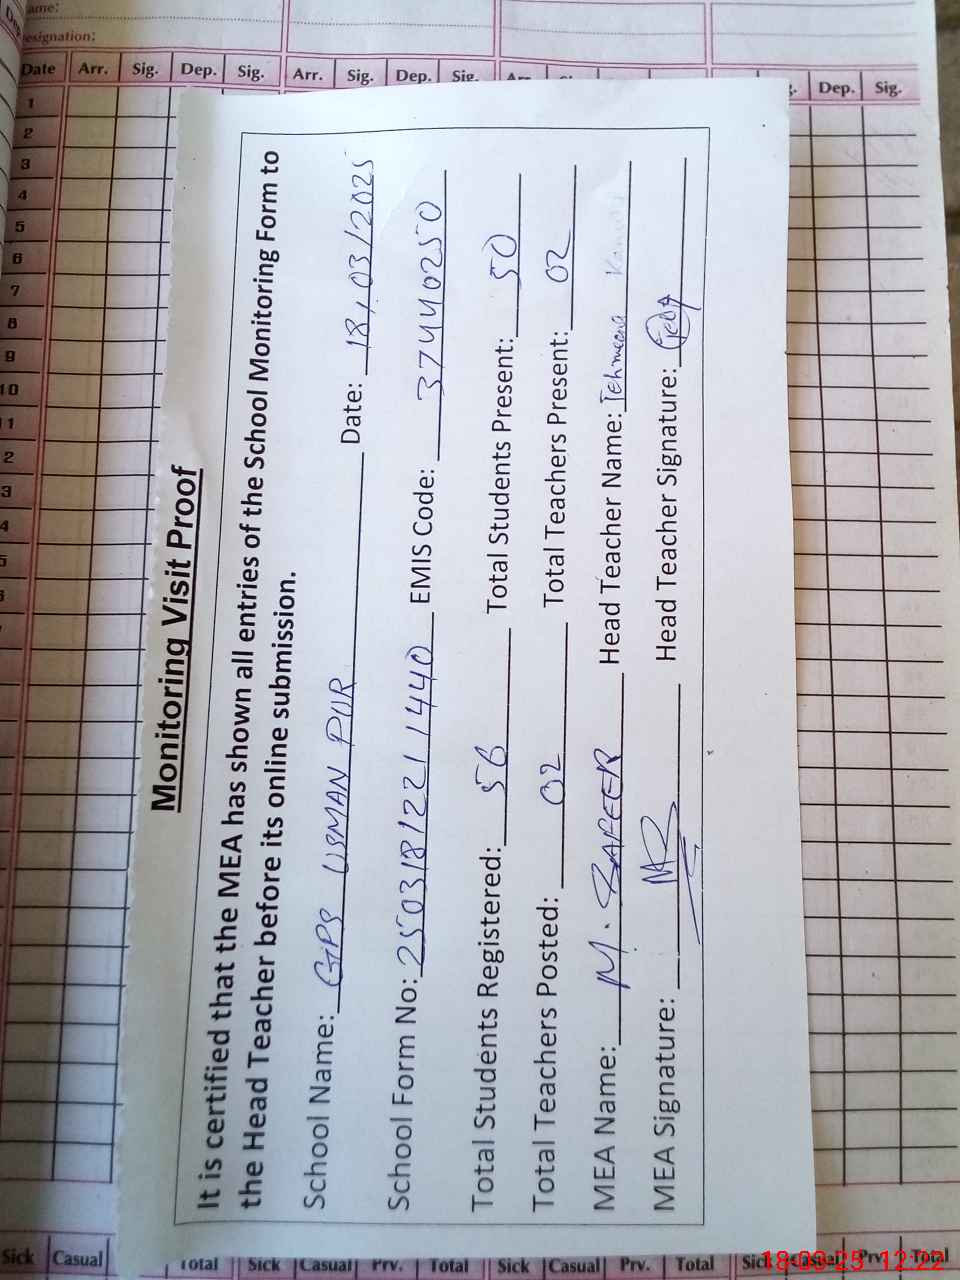 ame:
esignation:
Date Arr. Sig. Dep. Sig. Arr. Sig. Dep. Sig. Dep. Sig.
1
2
3
4
5
6
7
8
9
10
Monitoring Visit Proof
It is certified that the MEA has shown all entries of the School Monitoring Form to
the Head Teacher before its online submission.
School Name: GPS USMAN PUR Date: 18,03/2025
School Form No: 25031812211440 EMIS Code: 37440250
Total Students Registered: 56 Total Students Present: 50
Total Teachers Posted: 02 Total Teachers Present: 02
MEA Name: M. SAFEER Head Teacher Name: Tehmeena
MEA Signature: Head Teacher Signature:
Sick Casual Total Sick Casual Prv. Total Sick Casual Prv. Total Sick Casual Prv. Total
12:22